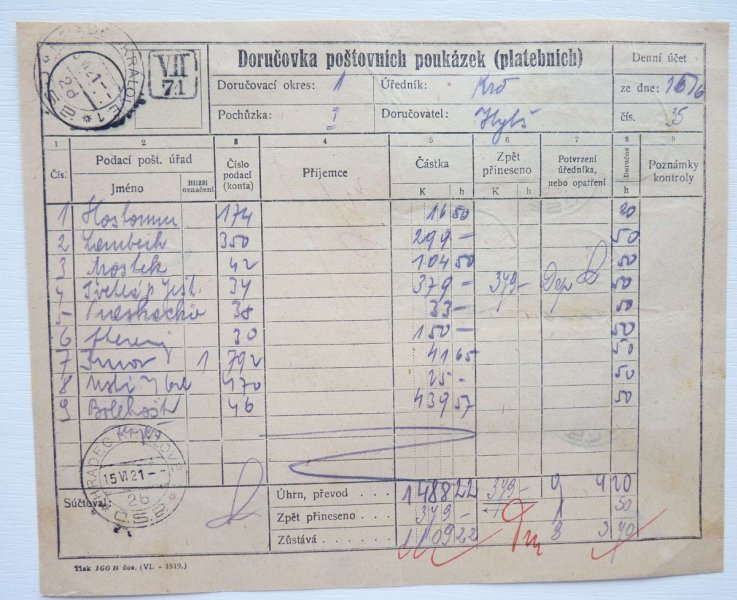 HRADEC KRÁLOVÉ 1
VII
71
Doručovka poštovních poukázek (platebních)
Denní účet
Doručovací okres: 1
Úředník:
ze dne: 15/6
Pochůzka: I
Doručovatel:
čís. 35
1 2 3 4 5 6 7 8 9
Čís. Podací pošt. úřad Číslo podací (konta) Příjemce Částka Zpět přineseno Potvrzení úředníka, nebo opatření Doručné Poznámky kontroly
Jméno Bližší označení K h K h h
1 Hostomice 174 16 50 20
2 Žamberk 350 299 – 50
3 Mostek 42 104 50 50
4 34 379 – 379 – 50
5 38 33 – 50
6 30 150 – 50
7 1 792 41 65 50
8 470 25 – 50
9 Bolehošť 46 439 57 50
HRADEC KRÁLOVÉ
15 VI 21
ČSP
Súčtoval:
Úhrn, převod . . . 1488 22 379 – 9 4 20
Zpět přineseno . . . 379 – 1 50
Zůstává . . . 1109 22 8 3 70
Tisk IGG B čes. (VI. - 1919.)